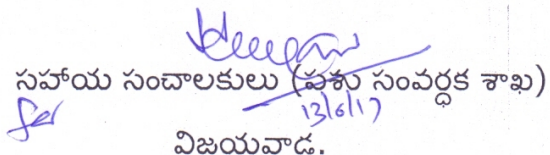 సహాయ సంచాలకులు (పశు సంవర్ధక శాఖ)
13/6/17
విజయవాడ.